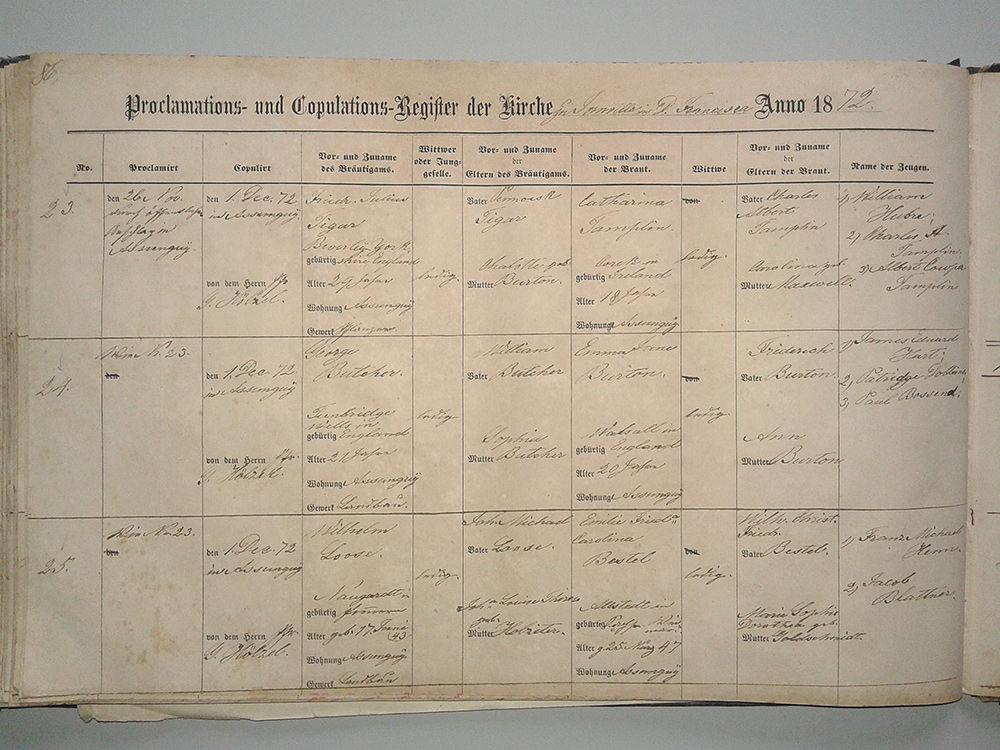 86.
Proclamations- und Copulations-Register der Kirche Anno 1872.
No. Proclamirt Copulirt Vor- und Zuname des Bräutigams. Wittwer oder Junggeselle. Vor- und Zuname der Eltern des Bräutigams. Vor- und Zuname der Braut. Wittwe Vor- und Zuname der Eltern der Braut. Name der Zeugen.
23.
den 26 Nov.
durch öffentlichen
Anschlag in
Assunguÿ.
den 1. Dec. 72
in Assunguÿ
von dem Herrn Pfr
G. Hölzel.
Friedr. Julius
Tigar
Beverley York
shire England
gebürtig
Alter 29 Jahre
Wohnung Assunguÿ
Gewerk Pflanzer
ledig.
Vater
Tigar
Charlotte geb.
Mutter Burton.
Catharina
Tamplin.
Cork in
gebürtig Ireland
Alter 18 Jahre
Wohnung Assunguÿ
den
ledig.
Charles
Vater Albert
Tamplin
Carolina geb.
Mutter Maxwell.
1) William
Hubre.
2) Charles A.
Tamplin.
3) Albert Cowper
Tamplin
24.
Wie No. 23.
den
den 1 Dec. 72
in Assunguÿ
von dem Herrn Pfr.
G. Hölzel.
George
Butcher.
Tunbridge
Wells in
gebürtig England
Alter 21 Jahre
Wohnung Assunguÿ
Gewerk Landbau.
ledig
William
Vater Butcher
Sophia
Mutter Butcher
Emma Jane
Burton.
Walsall in
gebürtig England
Alter 20 Jahre
Wohnung Assunguÿ
den
ledig.
Friederich
Vater Burton.
Ann
Mutter Burton
1) James Eduard
Hart.
2) Patridge
3) Paul Bossend.
25.
Wie No. 23.
den
den 1. Dec. 72
in Assunguÿ
von dem Herrn Pfr
G. Hölzel.
Wilhelm
Loose.
Naugardt in
gebürtig Pommern
Alter geb. 17 43
Wohnung Assunguÿ
Gewerk Landbau
ledig.
Joh. Michael
Vater Loose.
Joh. Louise
geb.
Mutter
Emilie Fried.
Carolina
Bestel
Allstedt in
gebürtig
Alter g 25 März 47
Wohnung Assunguÿ
den
ledig.
Wilh. Christ.
Friedr.
Vater Bestel.
Marie Sophie
Dorothea geb.
Mutter Goldschmidt.
1) Franz Michael
Henn.
2) Jacob
Blattner.